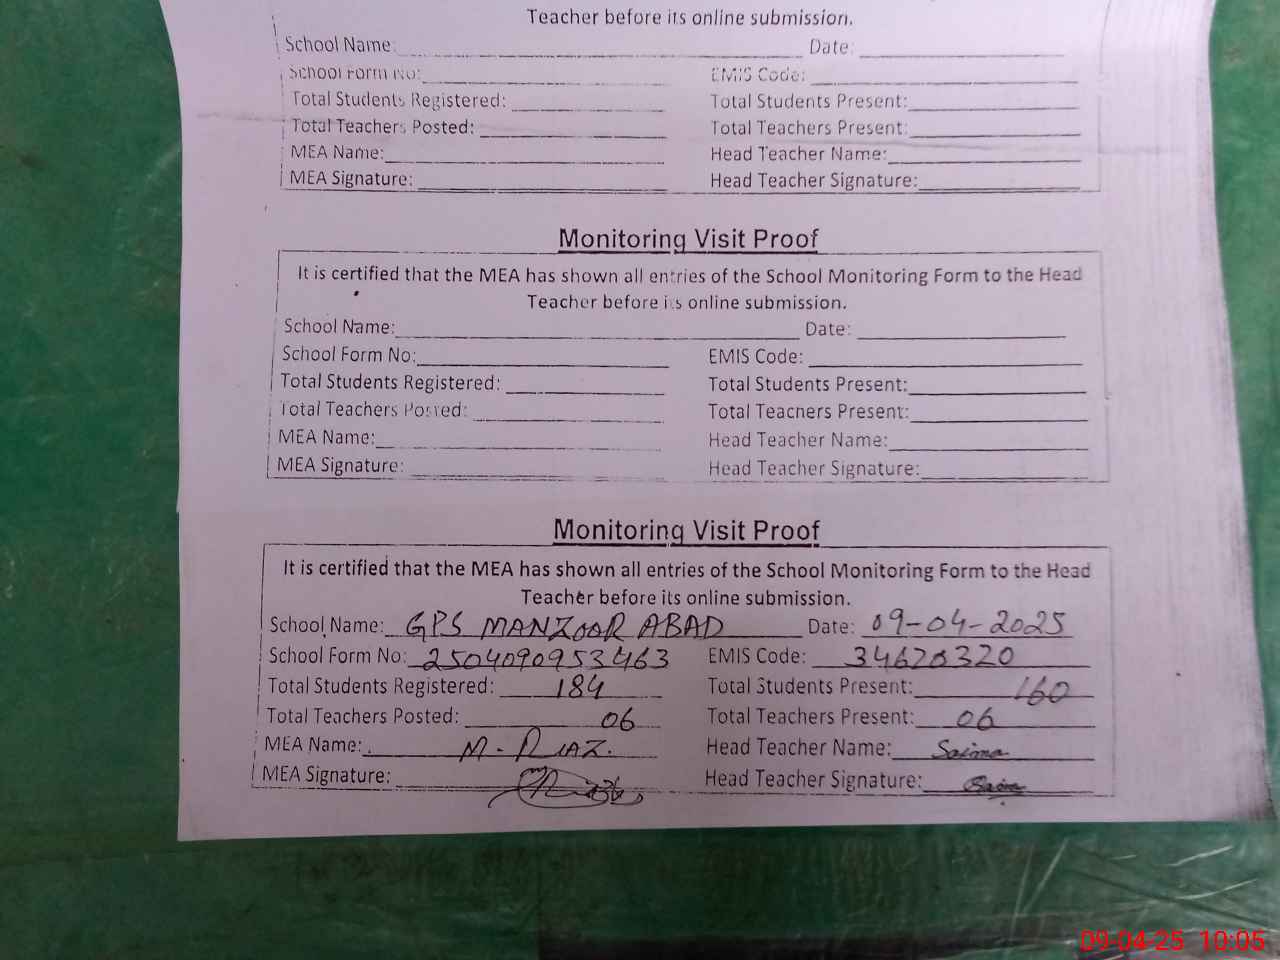 Teacher before its online submission.
School Name: Date:
School Form No: EMIS Code:
Total Students Registered: Total Students Present:
Total Teachers Posted: Total Teachers Present:
MEA Name: Head Teacher Name:
MEA Signature: Head Teacher Signature:
Monitoring Visit Proof
It is certified that the MEA has shown all entries of the School Monitoring Form to the Head
Teacher before its online submission.
School Name: Date:
School Form No: EMIS Code:
Total Students Registered: Total Students Present:
Total Teachers Posted: Total Teachers Present:
MEA Name: Head Teacher Name:
MEA Signature: Head Teacher Signature:
Monitoring Visit Proof
It is certified that the MEA has shown all entries of the School Monitoring Form to the Head
Teacher before its online submission.
School Name: GPS MANZOOR ABAD Date: 09-04-2025
School Form No: 2504090953463 EMIS Code:
Total Students Registered: 184 Total Students Present: 160
Total Teachers Posted: 06 Total Teachers Present: 06
MEA Name: M. RIAZ. Head Teacher Name: Saima
MEA Signature: Head Teacher Signature:
09-04-25 10:05